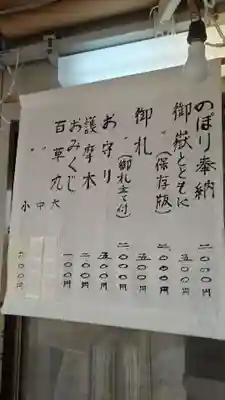 のぼり奉納 二〇〇〇円
御嶽とともに 五〇〇円
〃(保存版) 二〇〇〇円
御札 五〇〇円
〃(御札立て付) 二〇〇〇円
お守り 五〇〇円
護摩木
おみくじ 一〇〇円
百草丸 大
〃 中
〃 小